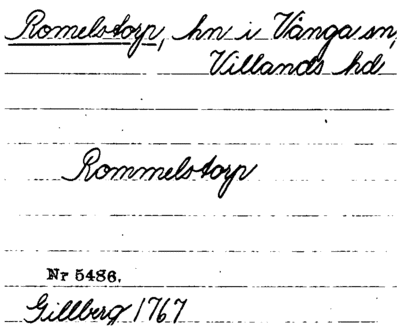 Romelstorp, hn i Vånga sn,
Villands hd
Rommelstorp
Nr 5486.
Gillberg 1767